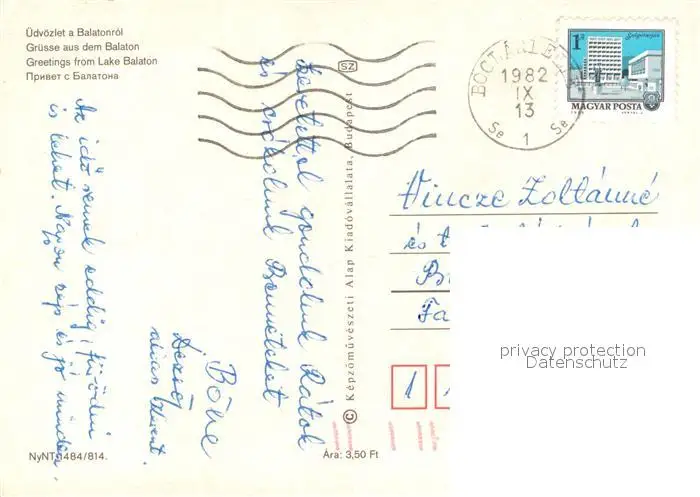 Üdvözlet a Balatonról
Grüsse aus dem Balaton
Greetings from Lake Balaton
Привет с Балатона
Szeretettel gondolunk Rátok
és csókolunk Benneteket
Böbe
Az idő remek eddig, fürödni
is lehet. Nagyon szép és jó minden.
NyNT 1484/814.
Ára: 3,50 Ft
© Képzőművészeti Alap Kiadóvállalata, Budapest
SZ
1982
IX
13
Se 1 Se
1 Ft
Salgótarján
MAGYAR POSTA
Vincze Zoltánné
és
1
privacy protection
Datenschutz